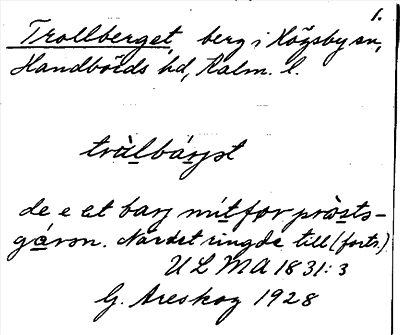 1.
Trollberget, berg i Högsby sn,
Handbörds hd, Kalm. l.
tràlbárjst
de e et barj mítfor pràsts-
gáron. Nardet ringde till (forts.)
ULMA 1831:3
G. Areskog 1928